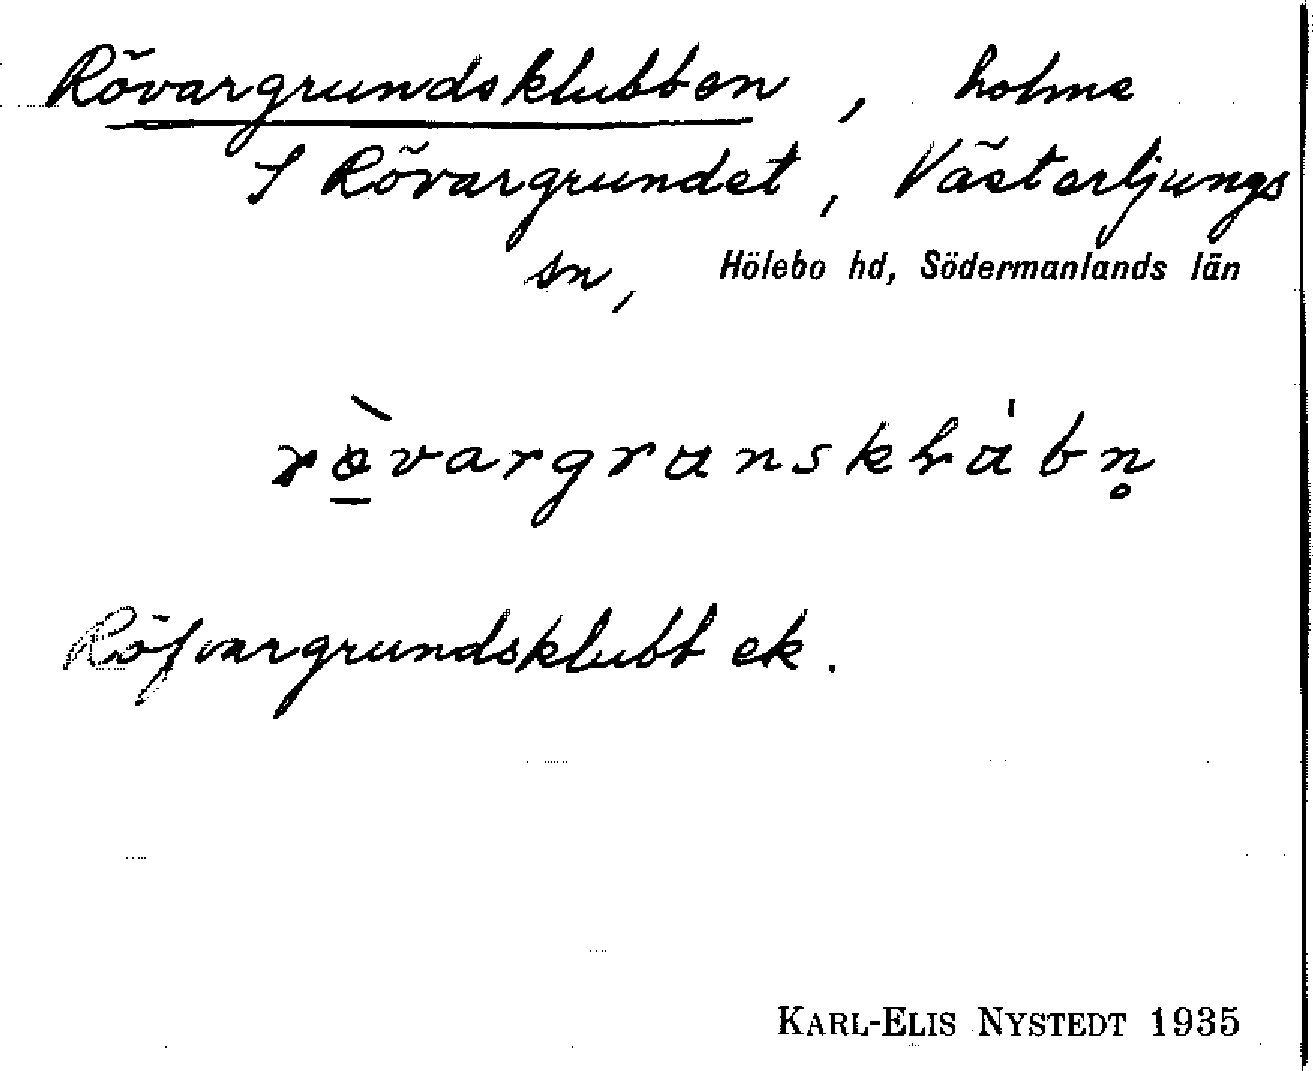 Rövargrundsklubben, holme
S Rövargrundet, Västerljungs
sn, Hölebo hd, Södermanlands län
Röfvargrundsklubb ek.
KARL-ELIS NYSTEDT 1935